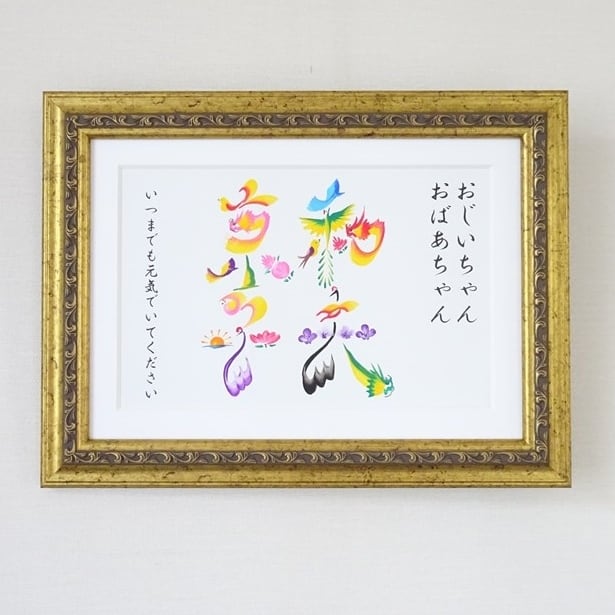 おじいちゃん
おばあちゃん
和夫
いつまでも元気でいてください